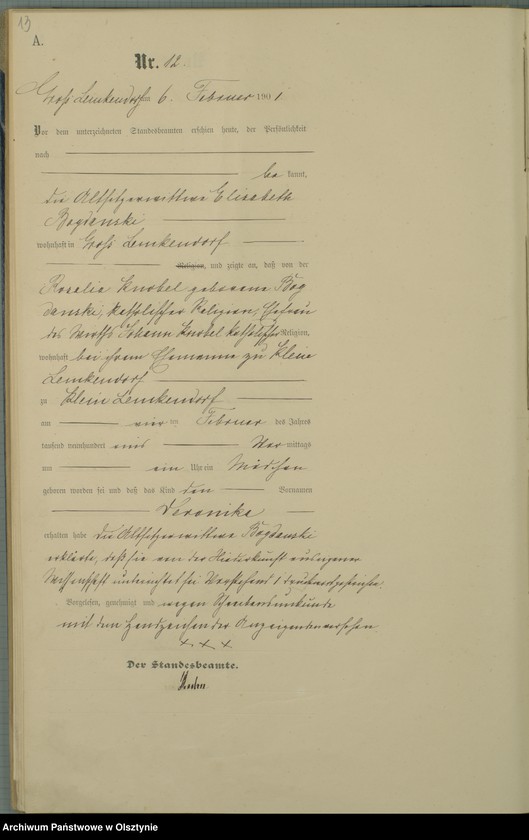 13
A.
Nr. 12.
Groß Lemkendorf am 6. Februar 1901
Vor dem unterzeichneten Standesbeamten erschien heute, der Persönlichkeit
nach
be kannt,
die Altsitzerwittwe Elisabeth
Bogdanski
wohnhaft in Groß Lemkendorf
Religion, und zeigte an, daß von der
Rosalie Knobel geborene Bog
danski, katholischer Religion, Ehefrau
des Wirths Johann Knobel katholischer Religion,
wohnhaft bei ihrem Ehemanne zu Klein
Lemkendorf
zu Klein Lemkendorf
am vier ten Februar des Jahres
tausend neunhundert eins Vor mittags
um ein Uhr ein Mädchen
geboren worden sei und daß das Kind den Vornamen
Veronika
erhalten habe Die Altsitzerwittwe Bogdanski
erklärte, daß sie von der Niederkunft aus eigener
Wissenschaft unterrichtet sei. Vorstehend 1 Druckwort gestrichen.
Vorgelesen, genehmigt und wegen Schreibensunkunde
mit dem Handzeichen der Anzeigenden versehen
+ + +
Der Standesbeamte.
Archiwum Państwowe w Olsztynie